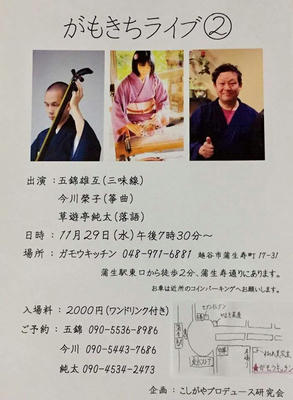 がもきちライブ②
出演：五錦雄互(三味線)
今川榮子(箏曲)
草遊亭純太(落語)
日時：11月29日(水)午後7時30分～
場所：ガモウキッチン 048-971-6881 越谷市蒲生寿町 17-31
蒲生駅東口から徒歩2分、蒲生寿通りにあります。
お車は近所のコインパーキングへお願いします。
入場料：2000円(ワンドリンク付き)
ご予約：五錦 090-5536-8986
今川 090-5443-7686
純太 090-4534-2473
企画：こしがやプロデュース研究会